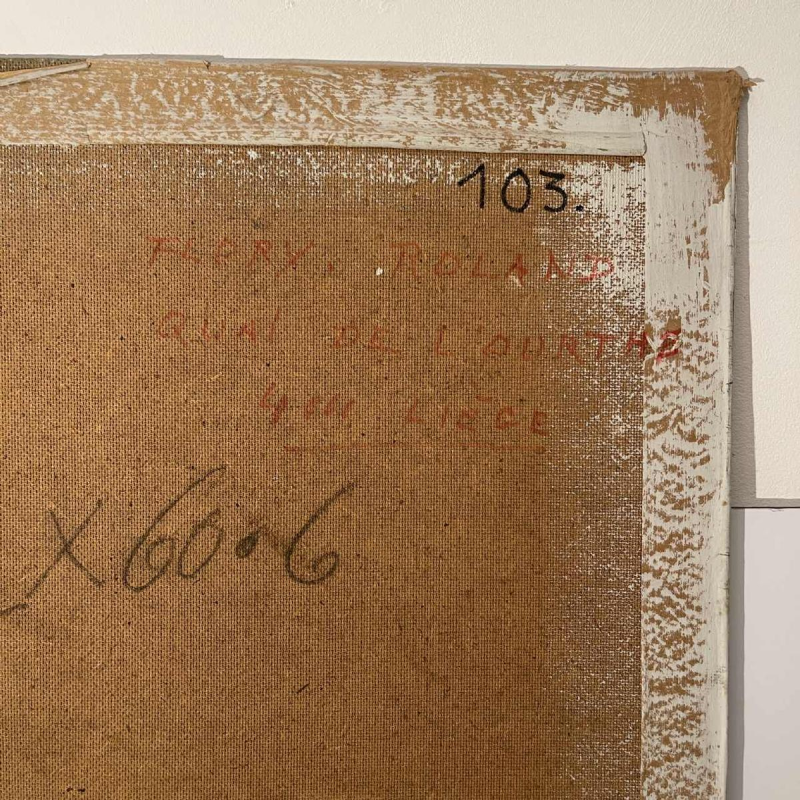 103.
FLORY, ROLAND
QUAI DE L'OURTHE
LIÈGE
X 60.6